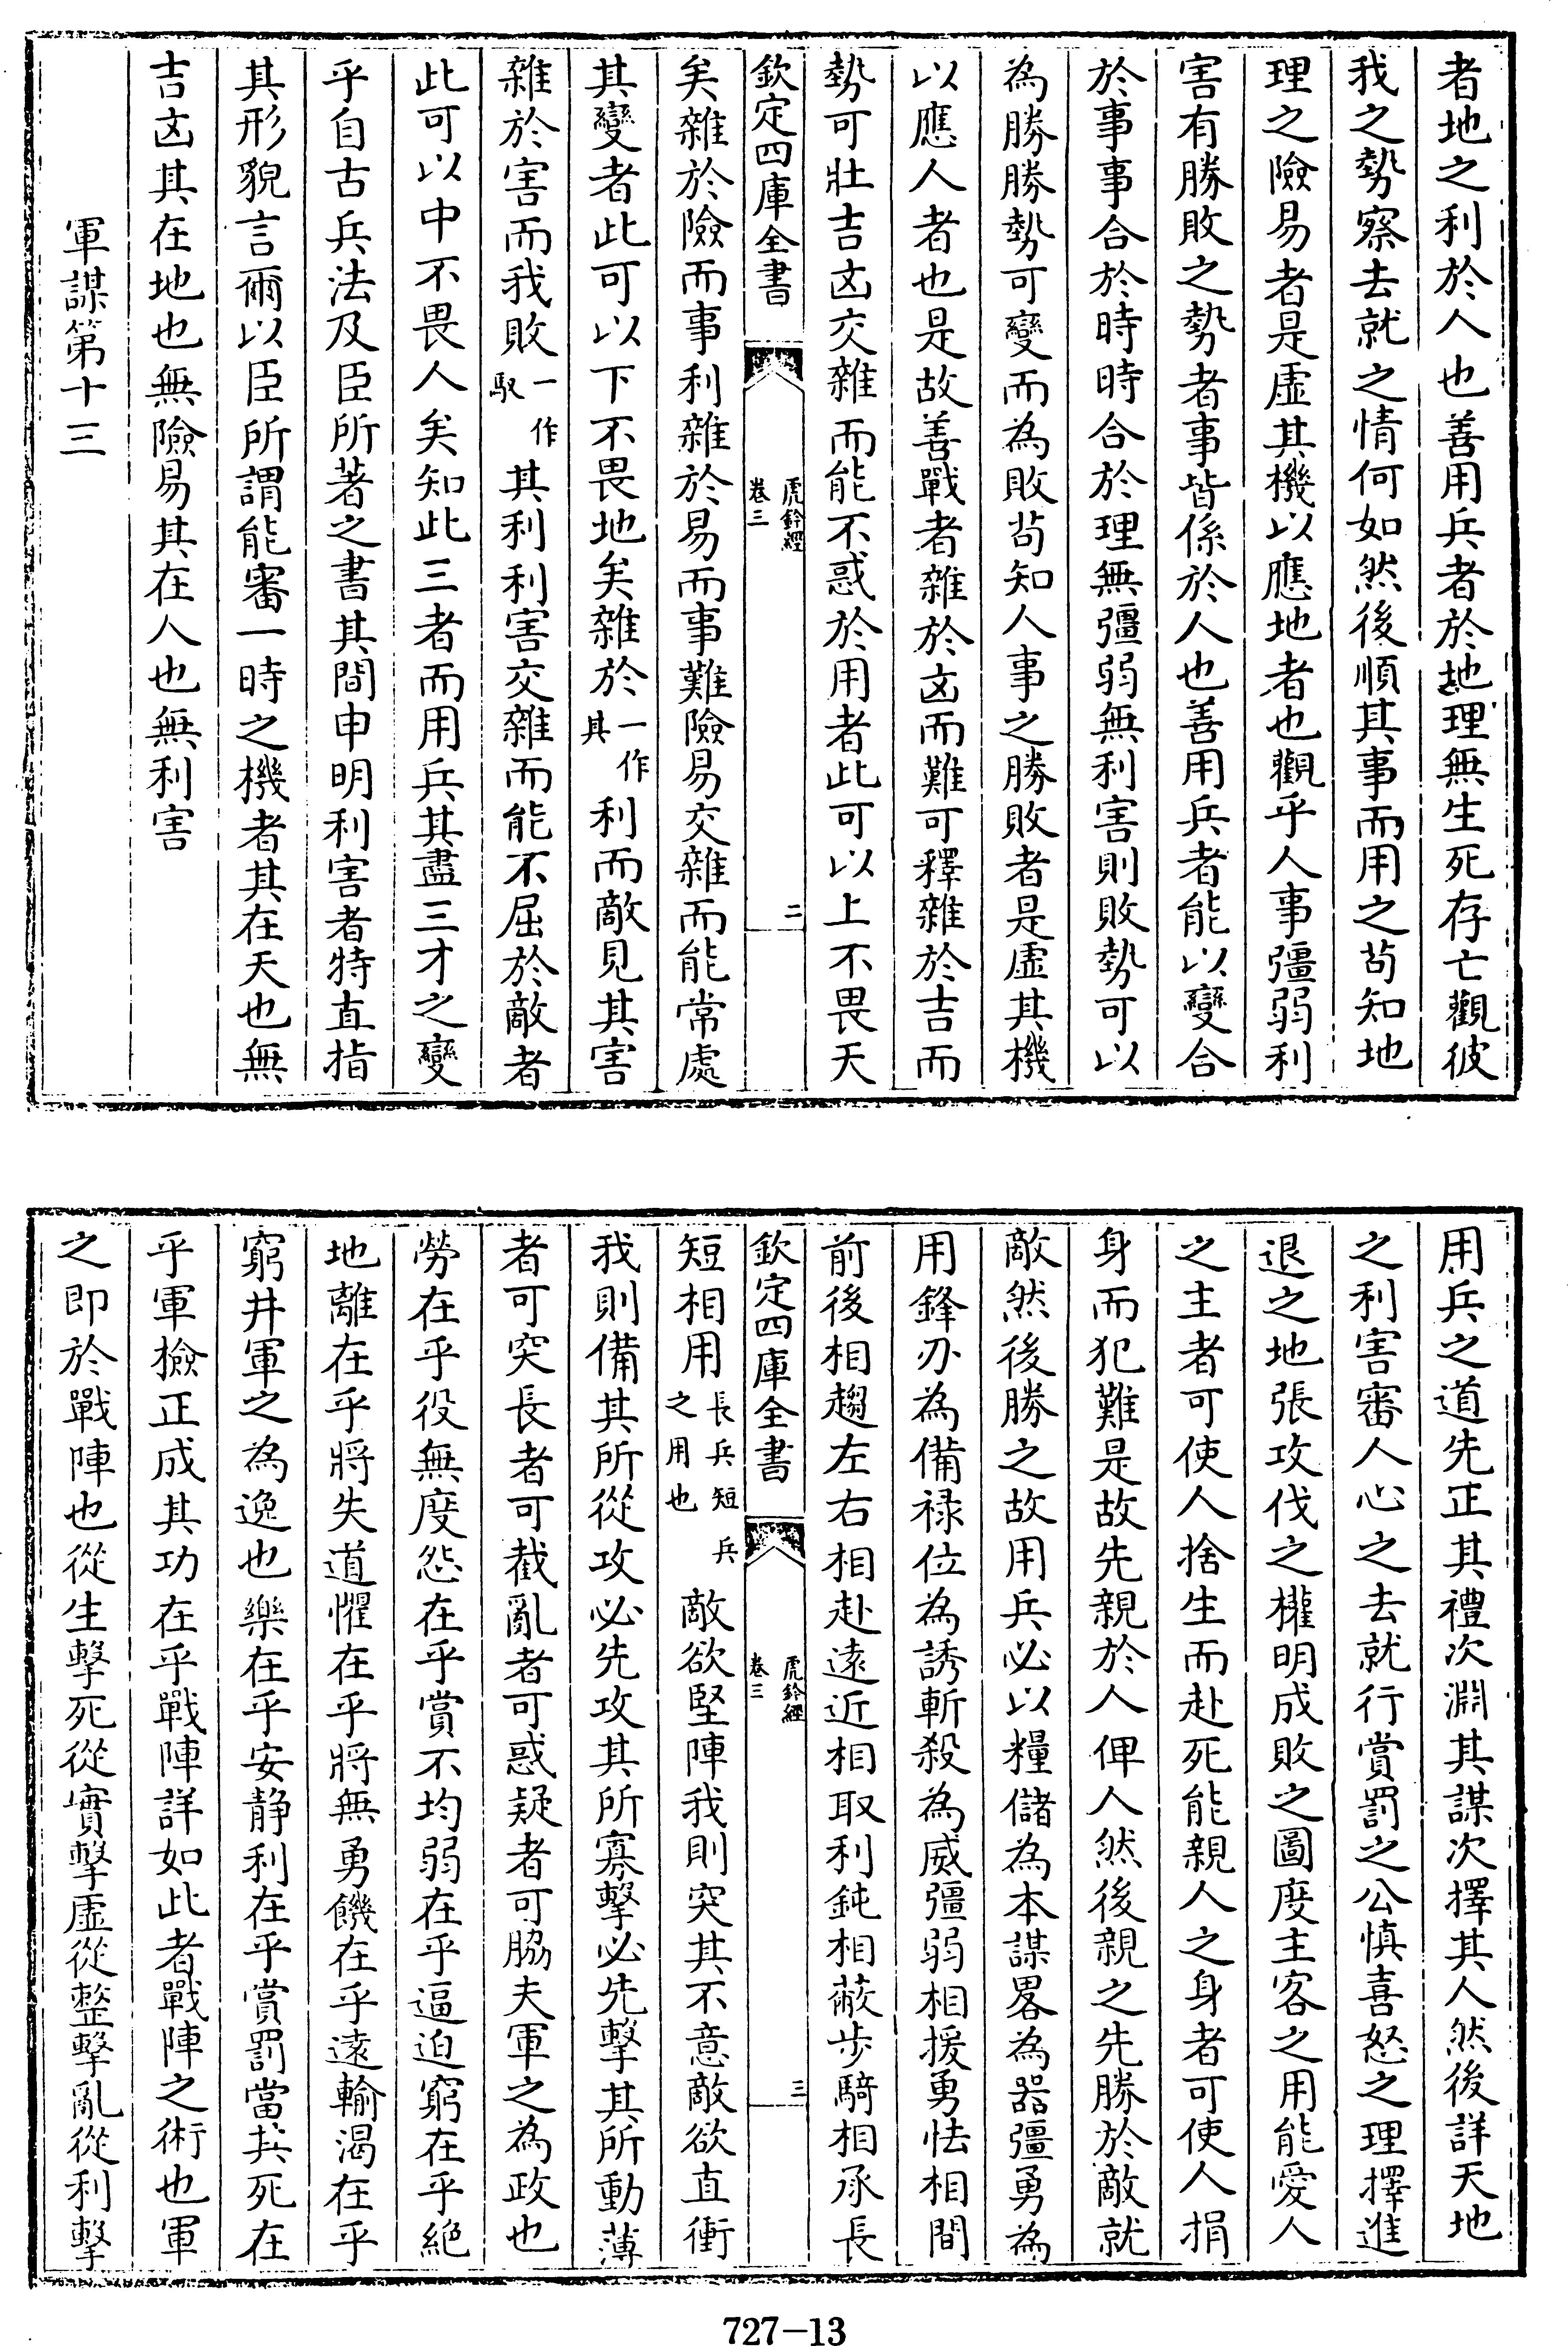 者地之利於人也善用兵者於地理無生死存亡觀彼
我之勢察去就之情何如然後順其事而用之茍知地
理之險易者是虛其機以應地者也觀乎人事彊弱利
害有勝敗之勢者事皆係於人也善用兵者能以變合
於事事合於時時合於理無彊弱無利害則敗勢可以
為勝勝勢可變而為敗茍知人事之勝敗者是虛其機
以應人者也是故善戰者雜於凶而難可釋雜於吉而
勢可壯吉凶交雜而能不惑於用者此可以上不畏天
欽定四庫全書
虎鈐經
卷三
二
矣雜於險而事利雜於易而事難險易交雜而能常處
其變者此可以下不畏地矣雜於一作其利而敵見其害
雜於害而我敗一作馭其利利害交雜而能不屈於敵者
此可以中不畏人矣知此三者而用兵其盡三才之變
乎自古兵法及臣所著之書其間申明利害者特直指
其形貌言爾以臣所謂能審一時之機者其在天也無
吉凶其在地也無險易其在人也無利害
軍謀第十三
用兵之道先正其禮次淵其謀次擇其人然後詳天地
之利害審人心之去就行賞罰之公慎喜怒之理擇進
退之地張攻伐之權明成敗之圖度主客之用能愛人
之主者可使人捨生而赴死能親人之身者可使人捐
身而犯難是故先親於人俾人然後親之先勝於敵就
敵然後勝之故用兵必以糧儲為本謀畧為器彊勇為
用鋒刃為備祿位為誘斬殺為威彊弱相援勇怯相間
前後相趨左右相赴遠近相取利鈍相蔽步騎相承長
欽定四庫全書
虎鈐經
卷三
三
短相用長兵短兵之用也敵欲堅陣我則突其不意敵欲直衝
我則備其所從攻必先攻其所寡擊必先擊其所動薄
者可突長者可截亂者可惑疑者可脇夫軍之為政也
勞在乎役無度怨在乎賞不均弱在乎逼迫窮在乎絕
地離在乎將失道懼在乎將無勇饑在乎遠輸渴在乎
窮井軍之為逸也樂在乎安靜利在乎賞罰當其死在
乎軍檢正成其功在乎戰陣詳如此者戰陣之術也軍
之即於戰陣也從生擊死從實擊虛從整擊亂從利擊
727-13